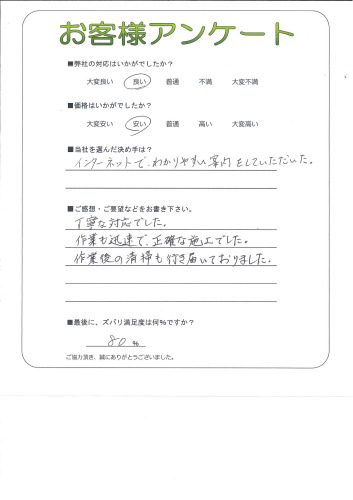 お客様アンケート
■弊社の対応はいかがでしたか？
大変良い 良い 普通 不満 大変不満
■価格はいかがでしたか？
大変安い 安い 普通 高い 大変高い
■当社を選んだ決め手は？
インターネットで、わかりやすい案内をしていただいた。
■ご感想・ご要望などをお書き下さい。
丁寧な対応でした。
作業も迅速で、正確な施工でした。
作業後の清掃も行き届いておりました。
■最後に、ズバリ満足度は何％ですか？
80 %
ご協力頂き、誠にありがとうございました。